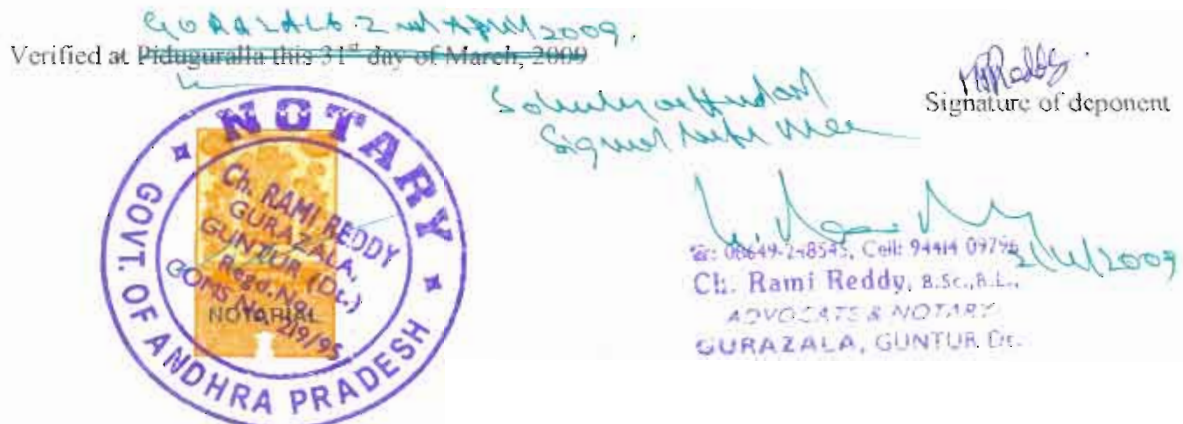 GURAZALA 2nd April 2009.
Verified at Piduguralla this 31st day of March, 2009
Solemnly affirmed and
Signed before me
Signature of deponent
NOTARY
GOVT. OF ANDHRA PRADESH
Ch. RAMI REDDY
GURAZALA,
GUNTUR (Dt.)
Regd. No.
GOMS No. 219/95
NOTARIAL
☎: 08649-248545, Cell: 94414 09796
2/4/2009
Ch. Rami Reddy, B.Sc.,B.L.,
ADVOCATE & NOTARY
GURAZALA, GUNTUR Dt.